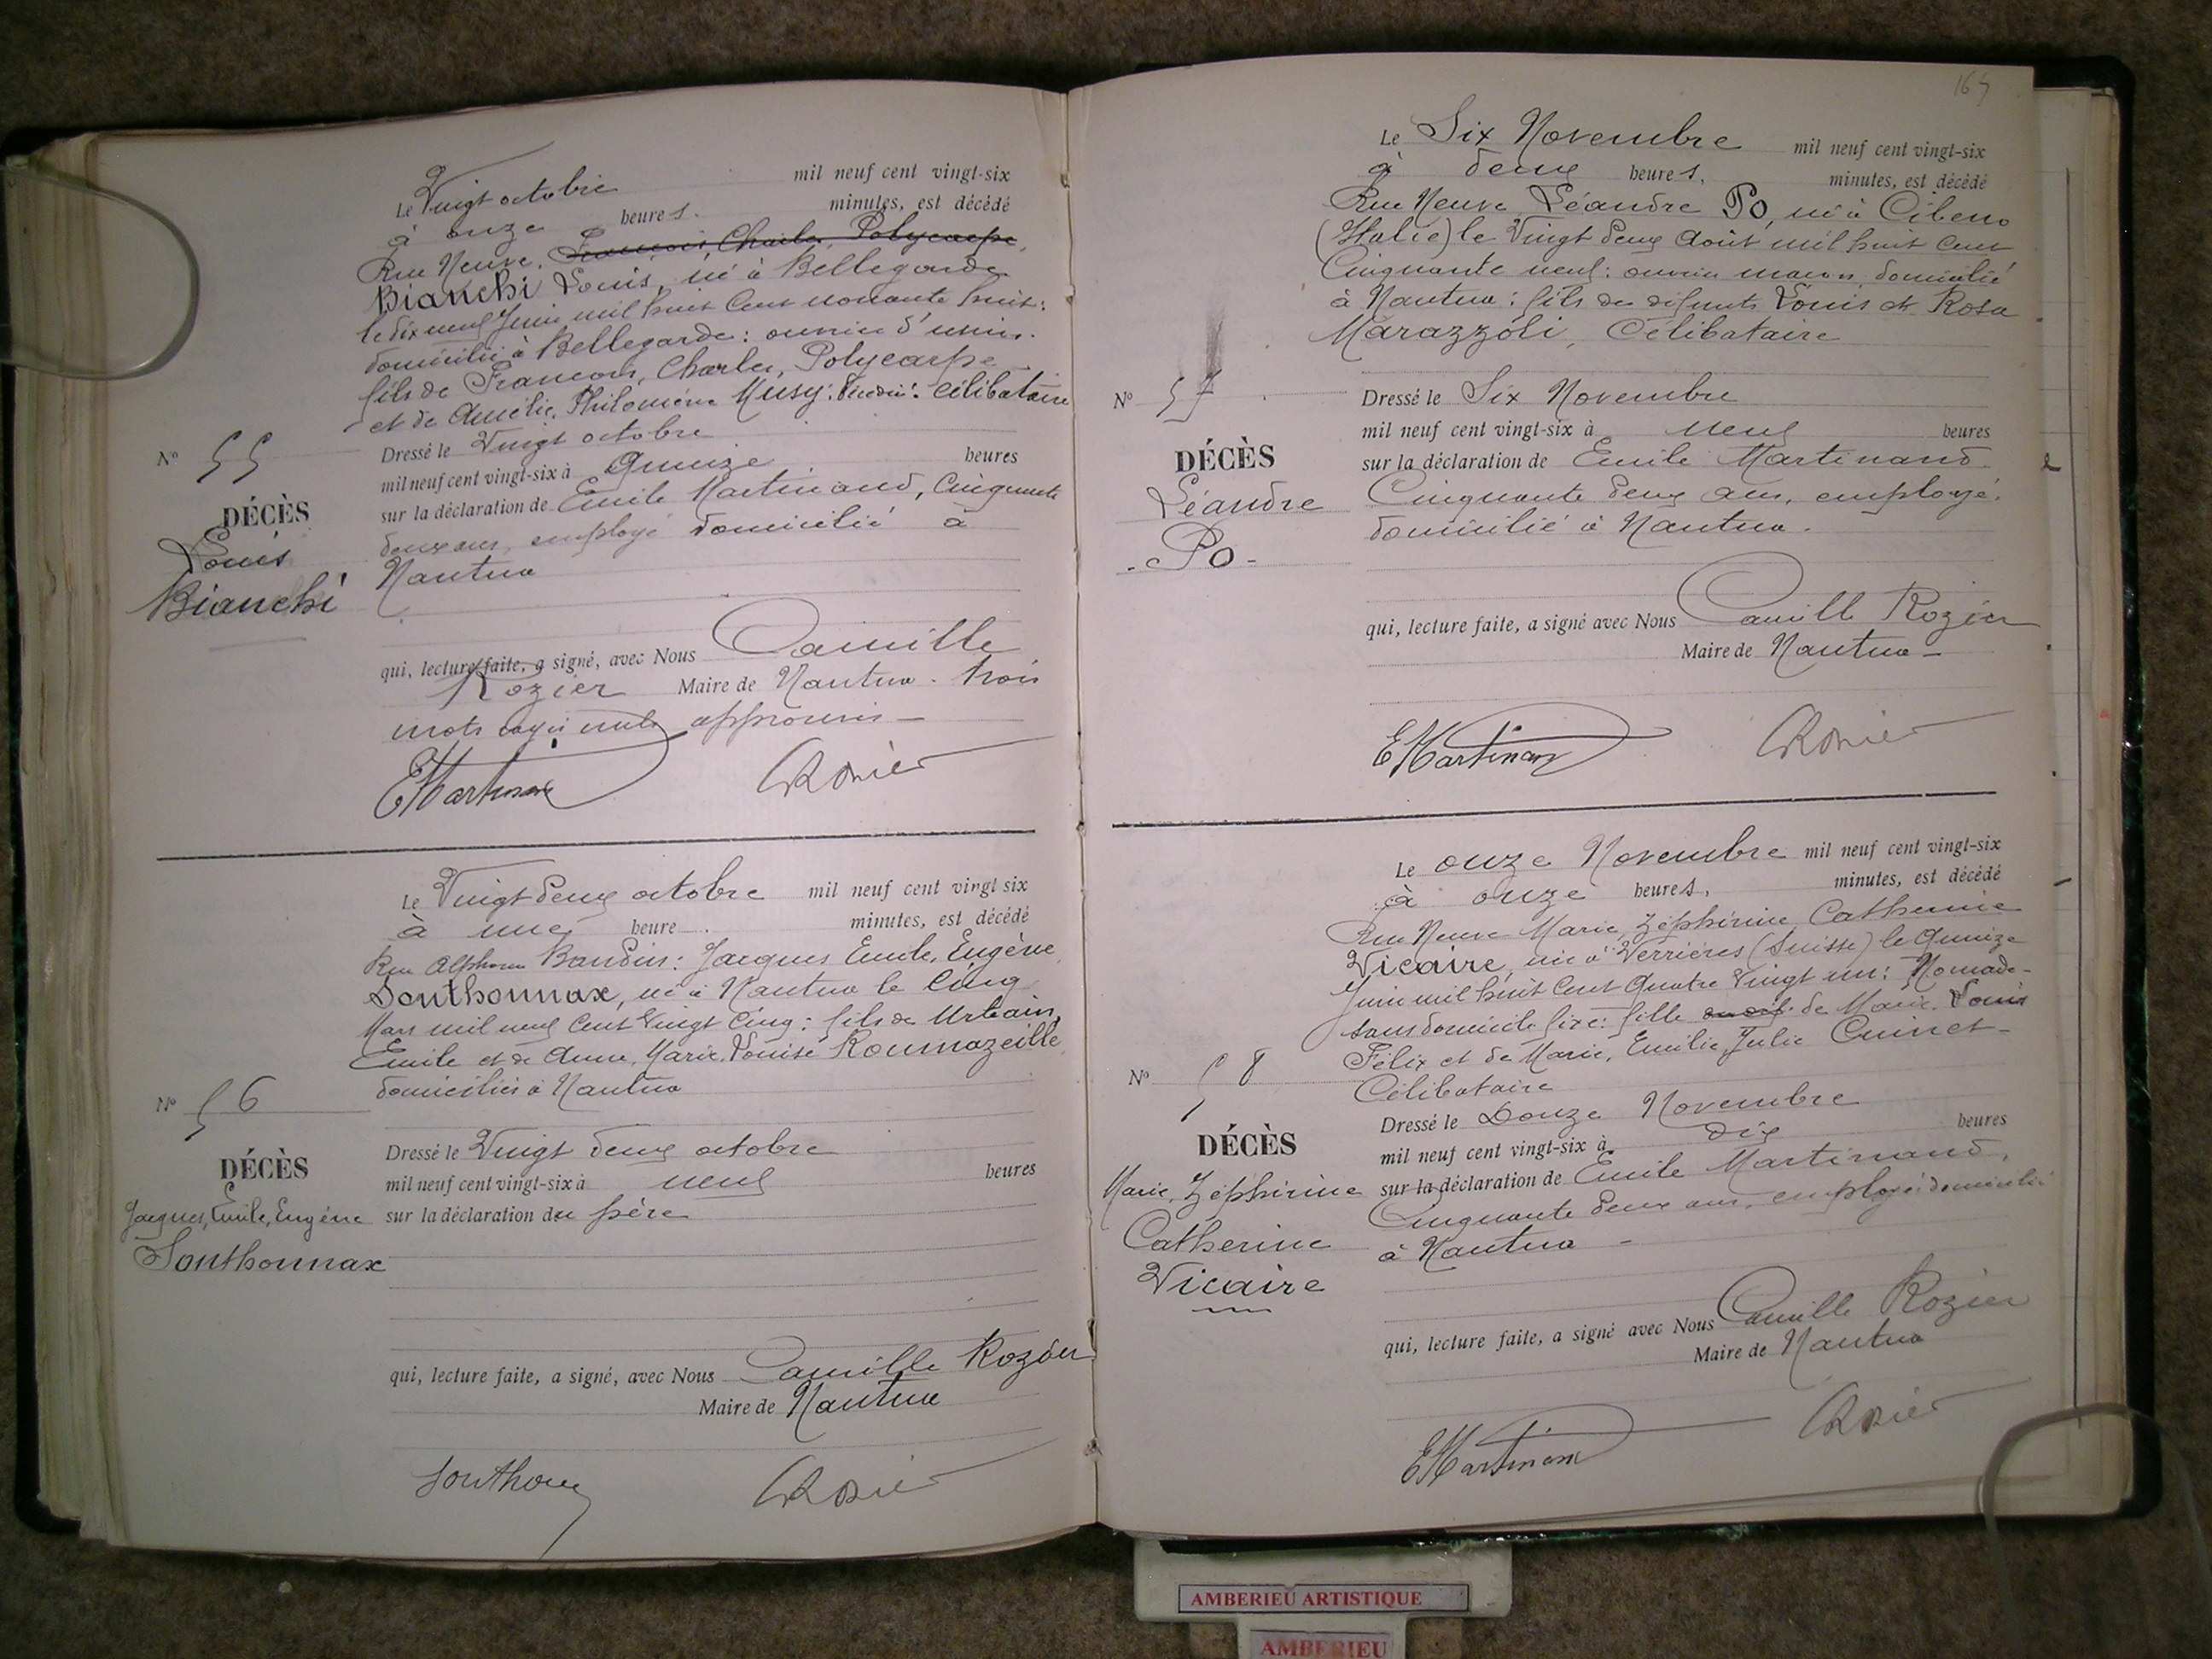 Le Vingt octobre mil neuf cent vingt-six
à onze heures. minutes, est décédé
Rue Neuve, François, Charles, Polycarpe,
Bianchi Louis, né à Bellegarde
le dix neuf Juin mil huit Cent nonante huit:
domicilié à Bellegarde: ouvrier d'usine.
fils de François, Charles, Polycarpe
et de Amélie, Philomène Musy: célibataire
Nº 55
DÉCÈS
Louis
Bianchi
Dressé le Vingt octobre
mil neuf cent vingt-six à Quinze heures
sur la déclaration de Emile Martinand, Cinquante
deux ans, employé domicilié à
Nantua
qui, lecture faite, a signé, avec Nous Camille
Rozier Maire de Nantua. trois
mots rayés nuls approuvés
EMartinand CRozier
Le Vingt deux octobre mil neuf cent vingt six
à une heure minutes, est décédé
Rue Alphonse Baudin: Jacques Emile, Eugène
Sonthonnax, né à Nantua le Cinq
Mars mil neuf Cent Vingt Cinq: fils de Urbain,
Emile et de Anne, Marie, Louise Roumazeille
domiciliés à Nantua
Nº 56
DÉCÈS
Jacques, Emile, Eugène
Sonthonnax
Dressé le Vingt deux octobre
mil neuf cent vingt-six à neuf heures
sur la déclaration du père
qui, lecture faite, a signé, avec Nous Camille Rozier
Maire de Nantua
Sonthonnax CRozier
165
Le Six Novembre mil neuf cent vingt-six
à deux heures, minutes, est décédé
Rue Neuve Léandre Po, né à Cibeno
(Italie) le Vingt deux Août mil huit Cent
Cinquante neuf: ouvrier maçon domicilié
à Nantua: fils de défunts Louis et Rosa
Marazzoli, Célibataire
Nº 57
DÉCÈS
Léandre
- Po -
Dressé le Six Novembre
mil neuf cent vingt-six à neuf heures
sur la déclaration de Emile Martinand
Cinquante deux ans, employé.
domicilié à Nantua.
qui, lecture faite, a signé avec Nous Camille Rozier
Maire de Nantua -
EMartinand CRozier
Le onze Novembre mil neuf cent vingt-six
à onze heures, minutes, est décédé
Rue Neuve Marie, Zéphirine, Catherine
Vicaire, née à Verrières (Suisse) le Quinze
Juin mil huit Cent Quatre Vingt un: Nomade -
sans domicile fixe: fille de Marie, Louis
Félix et de Marie, Emilie, Julie Cuinet -
Célibataire
Nº 58
DÉCÈS
Marie, Zéphirine
Catherine
Vicaire
Dressé le Douze Novembre
mil neuf cent vingt-six à dix heures
sur la déclaration de Emile Martinand,
Cinquante deux ans, employé domicilié
à Nantua -
qui, lecture faite, a signé avec Nous Camille Rozier
Maire de Nantua
EMartinand CRozier
AMBERIEU ARTISTIQUE
AMBERIEU